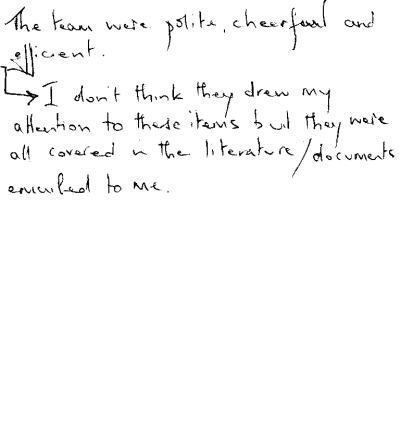 The team were polite, cheerful and
efficient.
I don't think they drew my
attention to these items but they were
all covered in the literature/documents
emailed to me.